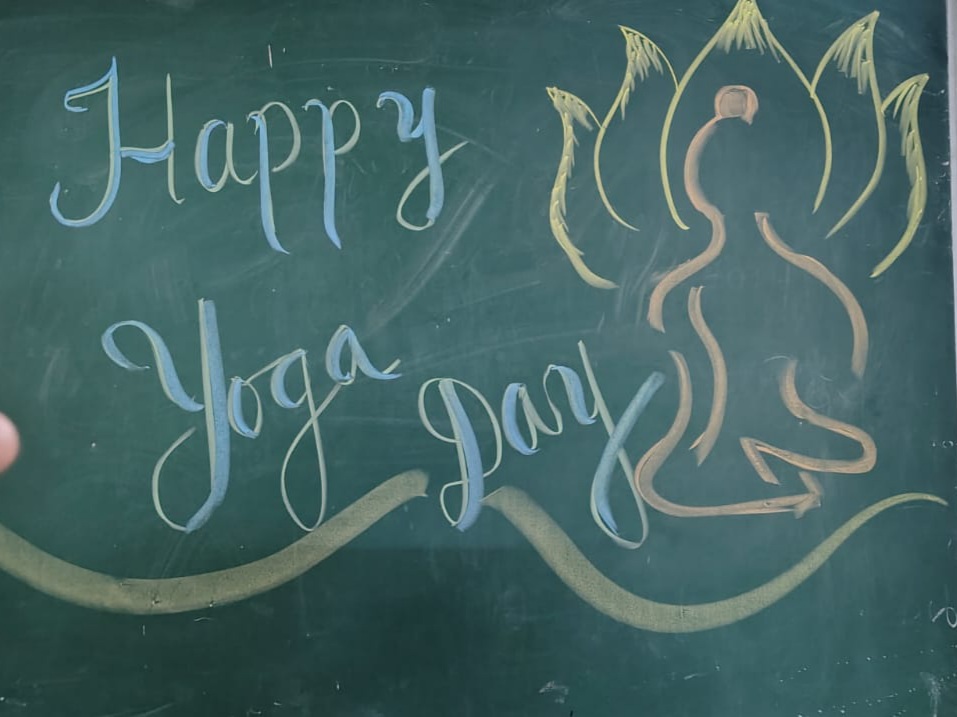 Happy
Yoga Day